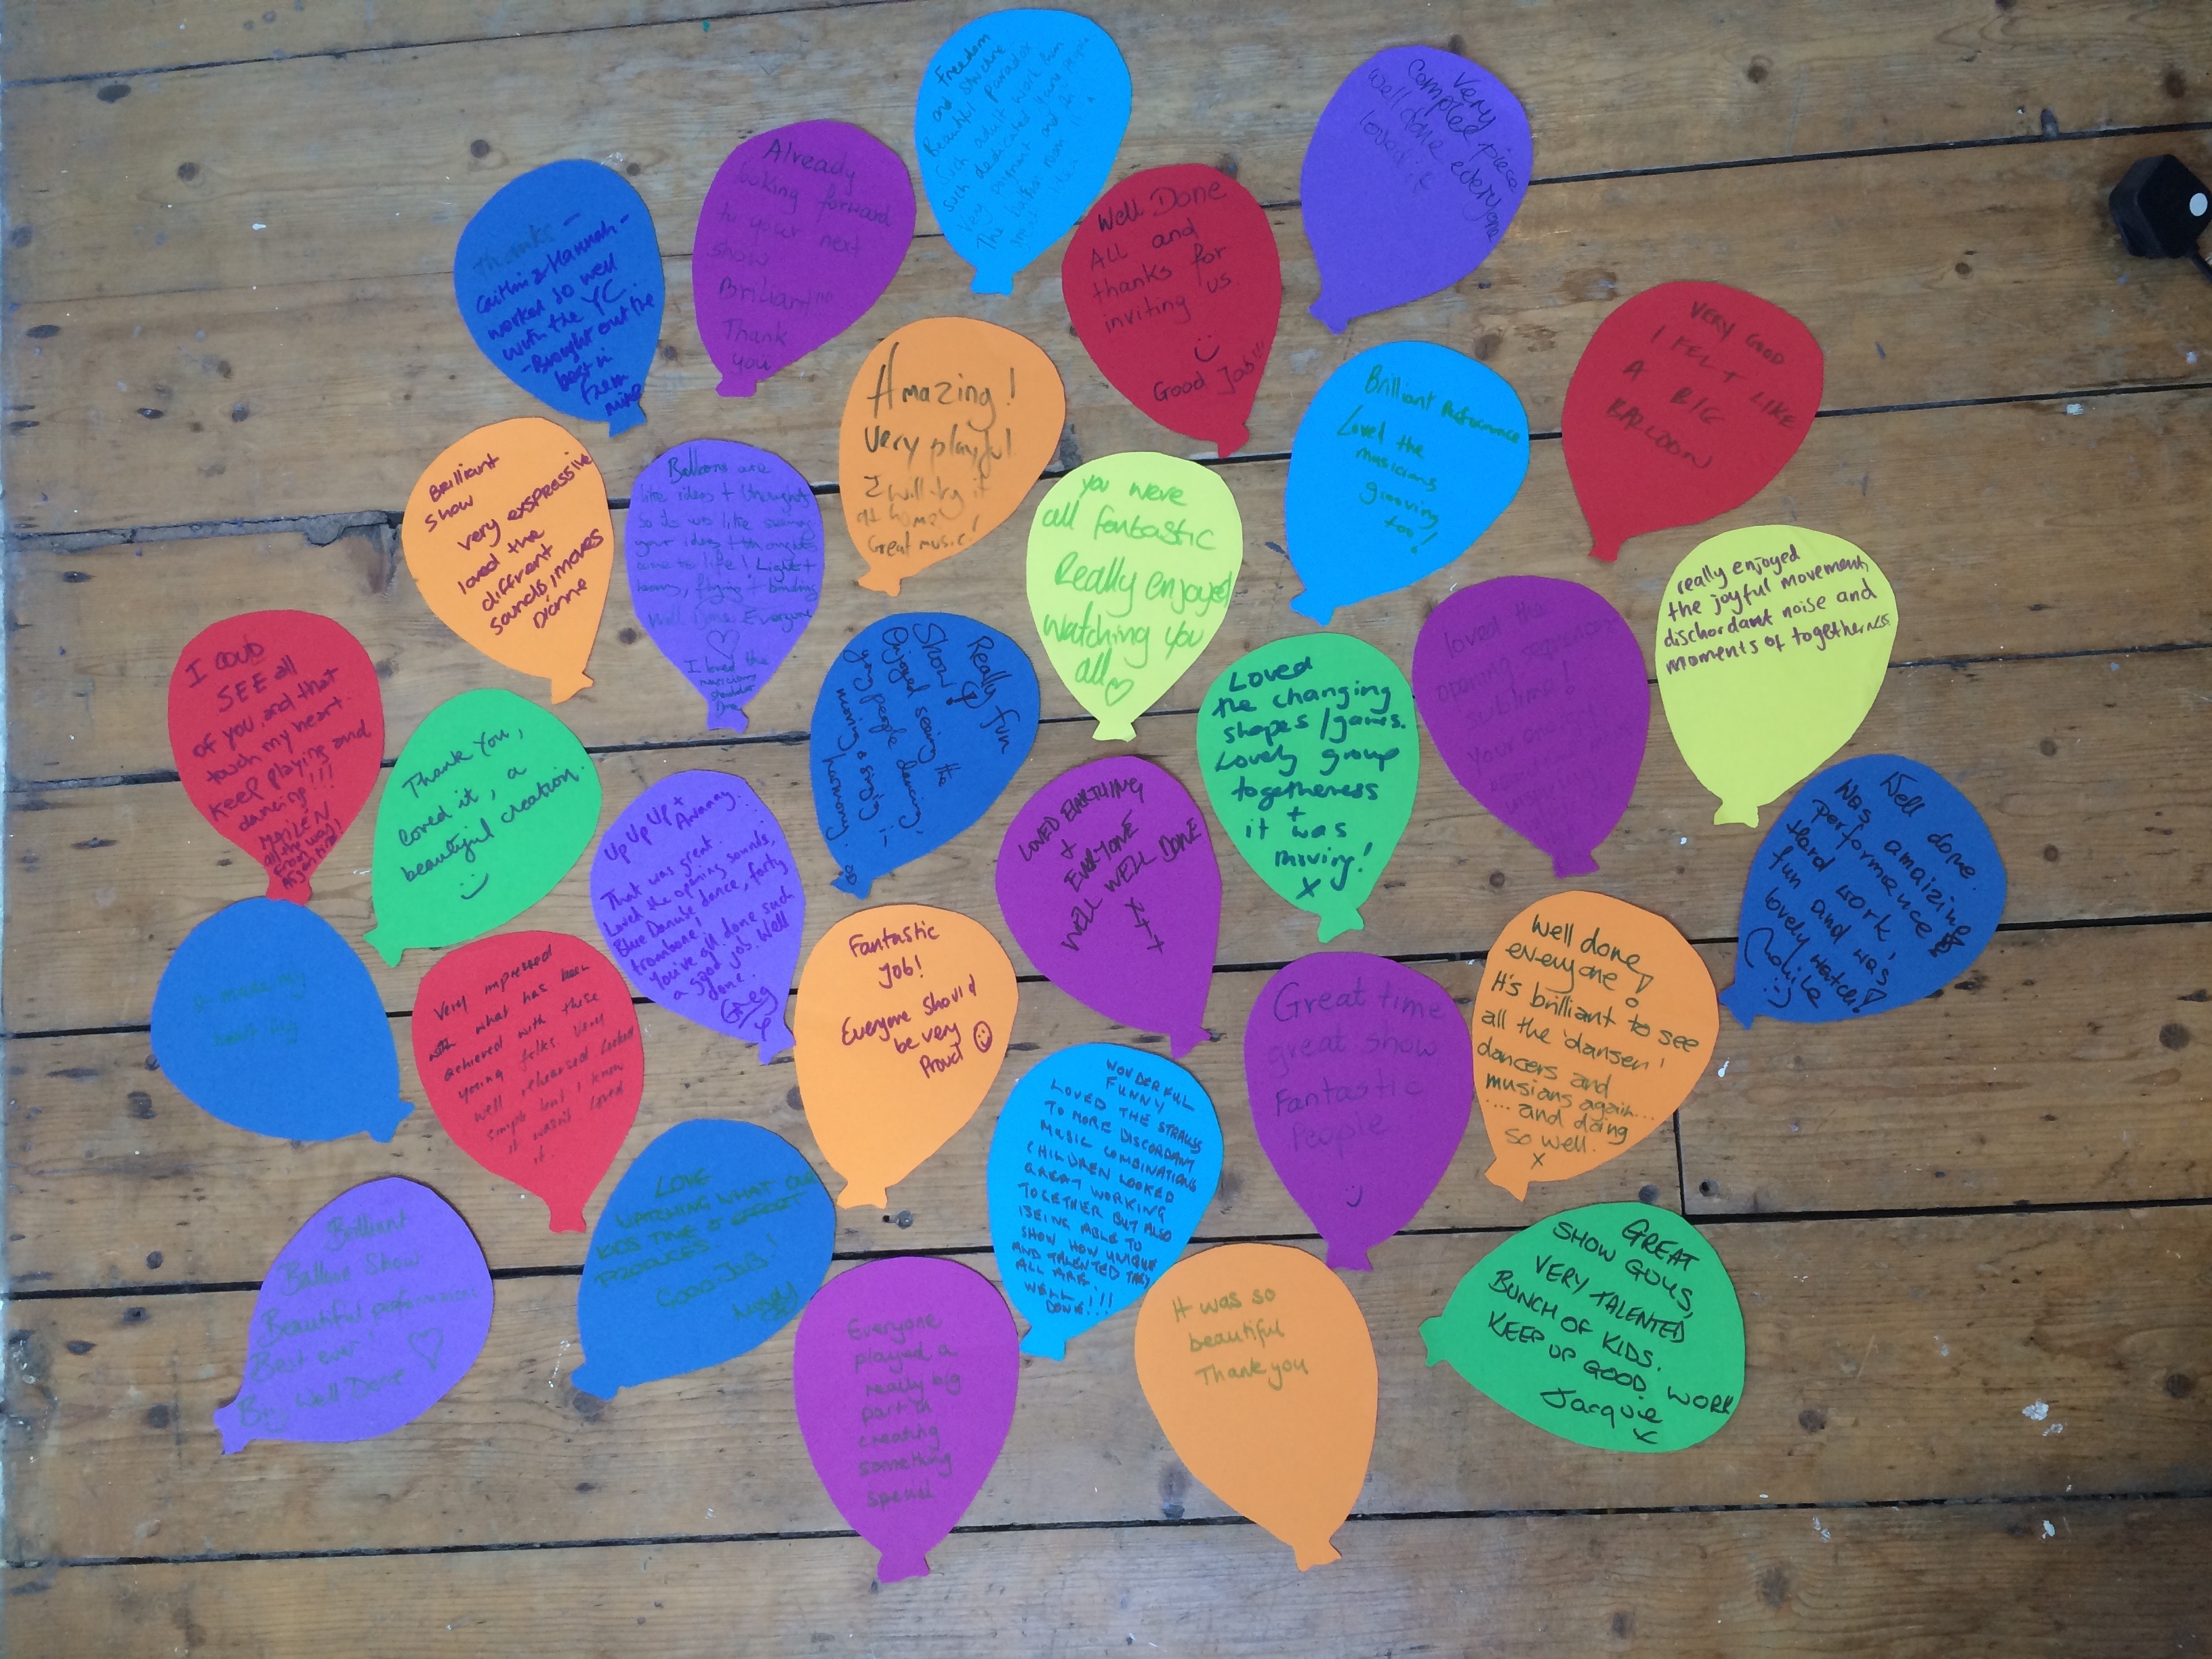 Freedom
and structure
Beautiful paradox
Very
Complex piece
well done everyone
loved it
Already
looking forward
to your next
show
Brilliant!!!
Thank
you
Thanks -
Caitlin & Hannah -
worked so well
with the YC
- Brought out the
best in
them
Well Done
All and
thanks for
inviting us
Good Job!!!
VERY GOOD
I FELT LIKE
A BIG
BALLOON
Amazing!
Very playful
I will try it
at home
Great music!
Brilliant Performance
Loved the
musicians
grooving
too!
Brilliant
show
very exspressive
loved the
diffrent
sounds, moves
Dianne
Balloons are
like ideas + thoughts
so it was like seeing
your ideas + thoughts
come to life! Light +
heavy, flying + bending
Well Done Everyone
I loved the
musicians
you were
all fantastic
Really enjoyed
watching you
all
really enjoyed
the joyful movement,
dischordant noise and
moments of togetherness
loved the
opening
sublime!
Your
I COUD
SEE all
of you and that
touch my heart.
Keep playing and
dancing!!!
MAILEN
all the way
From
Argentina!
Really fun
Show!
Enjoyed seeing the
young people dancing,
moving & singing in
harmony
Loved
the changing
shapes/games.
Lovely group
togetheness
+
it was
moving!
x
Thank You,
loved it, a
beautiful creation.
Up Up Up +
Awaaay.
That was great.
Loved the opening sounds,
Blue Danube dance, farty
trombone!
You've all done such
a good job. Well
done.
Greg
x
LOVED EVERYTHING
+
EVERYONE
WELL WELL DONE
x
+
+
Well done.
Was amaizing
performance
Hard work,
fun and was
lovely watch!
Amazing
Very impressed
with what has been
achieved with these
young folks. Very
well rehearsed looked
simple but I know
it wasn't. Loved
it
Fantastic
Job!
Everyone should
be very
Proud
Well done
everyone!
It's brilliant to see
all the 'dansen'
dancers and
musians again...
.... and doing
so well.
x
Great time
great show
Fantastic
People
WONDERFUL
FUNNY
LOVED THE STRAUSS
TO MORE DISCORDANT
MUSIC COMBINATIONS
CHILDREN LOOKED
GREAT WORKING
TOGETHER BUT ALSO
BEING ABLE TO
SHOW HOW UNIQUE
AND TALENTED THEY
ALL ARE.
WELL !!!
DONE!!!
LOVE
WATCHING WHAT OUR
KIDS TIME & EFFORT
PRODUCES.
GOOD JOB!
Brilliant
Balloon Show
Beautiful performances
Best ever!
Big Well Done
Everyone
played a
really big
part in
creating
something
special
It was so
beautiful
Thank you
GREAT
SHOW GUYS,
VERY TALENTED
BUNCH OF KIDS.
KEEP UP GOOD WORK
Jacquie
x